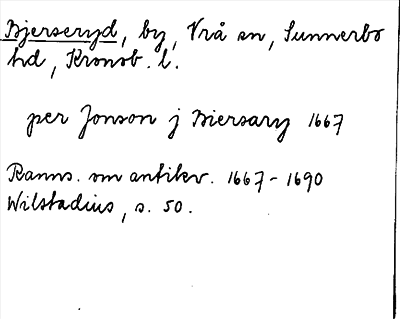 Bjerseryd, by, Vrå sn, Sunnerbo
hd, Kronob. l.
per Jonson j Biersary 1667
Ranns. om antikv. 1667-1690
Wilstadius, s. 50.